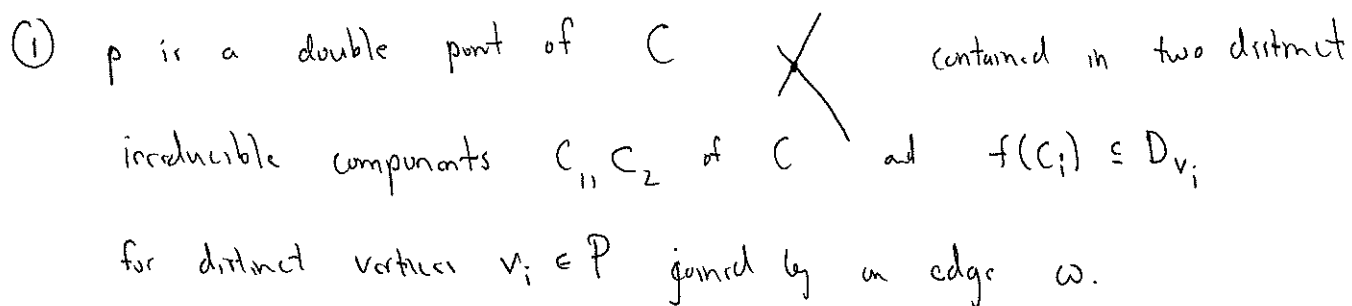 ① p is a double point of C contained in two distinct
irreducible components C₁, C₂ of C and f(Cᵢ) ⊆ D_{vᵢ}
for distinct vertices vᵢ ∈ P joined by an edge ω.